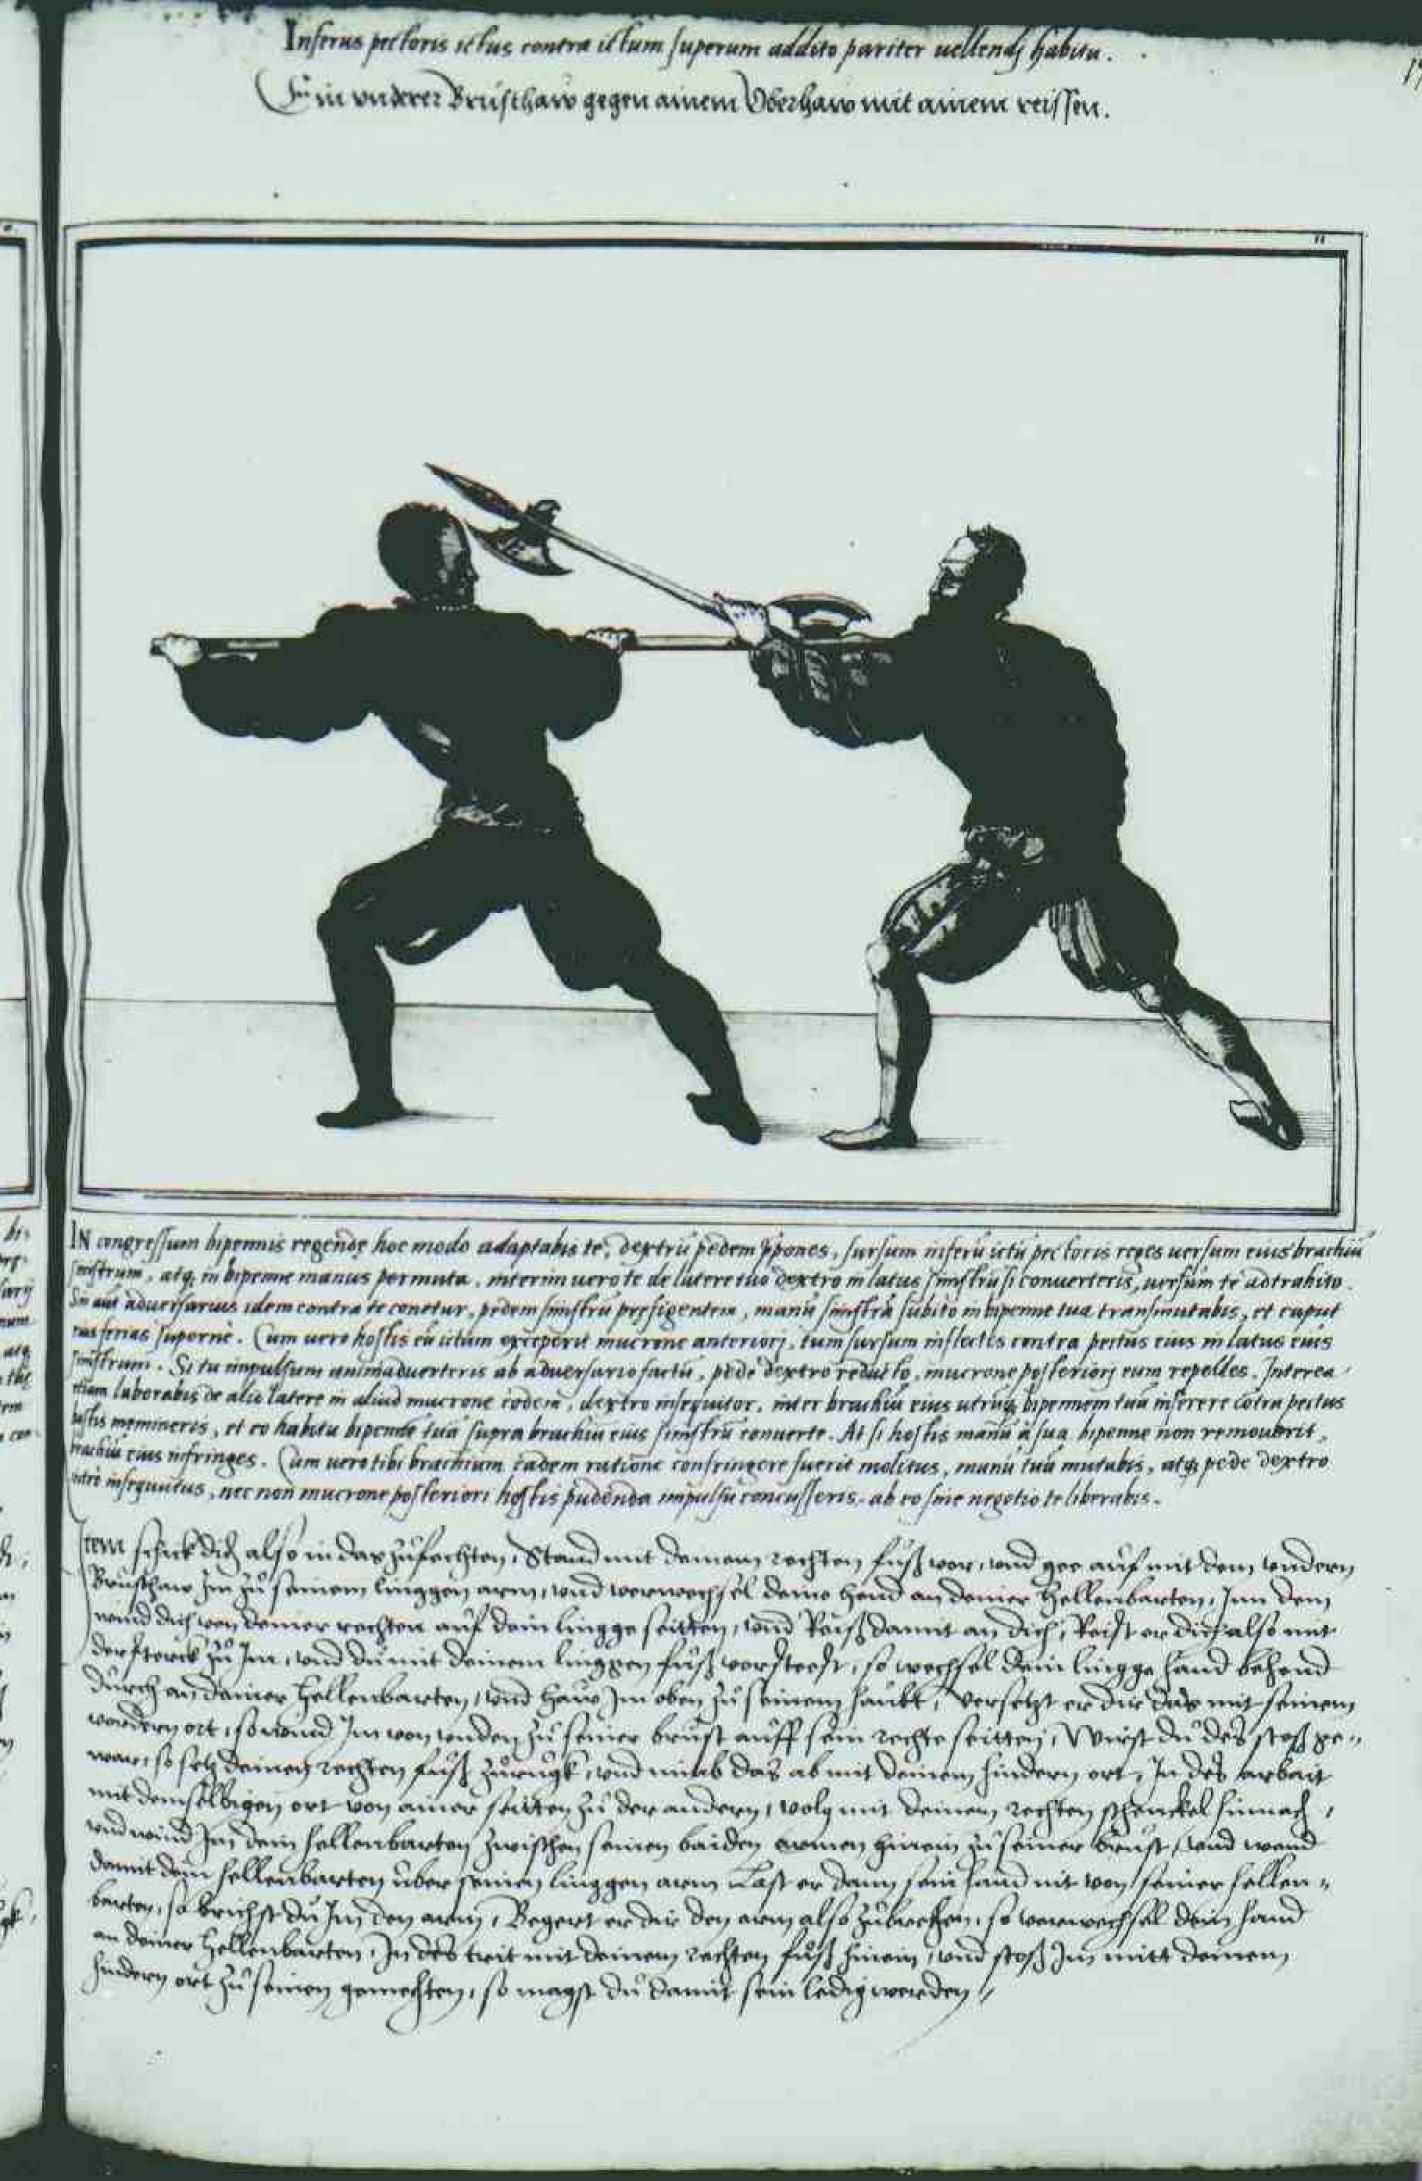 Inferus pectoris ictus contra ictum superum addito pariter vellendj habitu.
Ein vnderer Brusthaw gegen ainem Oberhaw mit ainem reissen.
11
IN congressum bipennis regendę hoc modo adaptabis te, dextrũ pedem p̃pones, sursum inferũ ictũ pectoris reges versum eius brachiũ
sinistrum, atq; in bipenne manus permuta, interim vero te de latere tuo dextro in latus sinistrũ si converteris, versum te adtrahito.
Sin aut adversarius idem contra te conetur, pedem sinistrũ prefigentem, manũ sinistrã subito in bipenne tua transmutabis, et caput
eius ferias supernè. Cum vero hostis eũ ictum exceperit mucrone anteriorj, tum sursum inflectes contra pectus eius in latus eius
sinistrum. Si tu impulsum animadverteris ab adversario factũ, pede dextro reducto, mucrone posteriorj eum repelles. Interea
etiam laborabis de alio latere in aliud mucrone eodem, dextro insequitor, inter brachiũ eius utrũq; bipennem tuã inserere cõtra pectus
hostis memineris, et eo habitu bipennẽ tuã supra brachiũ eius sinistrũ converte. At si hostis manũ à sua bipenne non removerit,
brachiũ eius infringes. Cum vero tibi brachium eadem ratione confringere fuerit molitus, manũ tuã mutabis, atq; pede dextro
intro insequutus, nec non mucrone posteriori hostis pudenda impulsu concusseris, ab eo sine negotio te liberabis.
Item schick dich also in das zůfechten, Stand mit deinem rechten fůß vor, vnd gee auf mit dem vndern
Brusthaw Im zů seinem linggen arm, vnd verwechsel deine hend an deiner Hellenbarten, Inn dem
wind dich von deiner rechten auf dein lingge seitten, vnd Reiß damit an dich, Reist er dich also mit
der sterck zů Im, vnd du mit deinem linggen fůß vorsteest, so wechsel dein lingge hand behend
durch an deiner Hellenbarten, vnd haw Im oben zů seinem haubt, Versetzt er dir das mit seinem
vordern ort, so wind Im von vnden zů seiner brust auff sein rechte seitten, Wirst du des stoß ge-
war, so setz deinen rechten fůß zůrugk, vnd nimb das ab mit deinem hindern ort, In des arbait
mit demselbigen ort von ainer seitten zů der andern, volg mit deinem rechten schenckel hinnach,
vnd wind Im dein hellenbarten zwischen seinen baiden armen hinein zů seiner brust, vnd wend
damit dein hellenbarten uber seinen linggen arm Last er dann sein hand nit von seiner hellen-
barten, so brichst du Im den arm, Begert er dir den arm also zůbrechen, so verwechsel dein hand
an deiner Hellenbarten, In des trit mit deinem rechten fůß hinein, vnd stoß Im mitt deinem
hindern ort zů seinen gemechten, so magst du damit sein ledig werden,